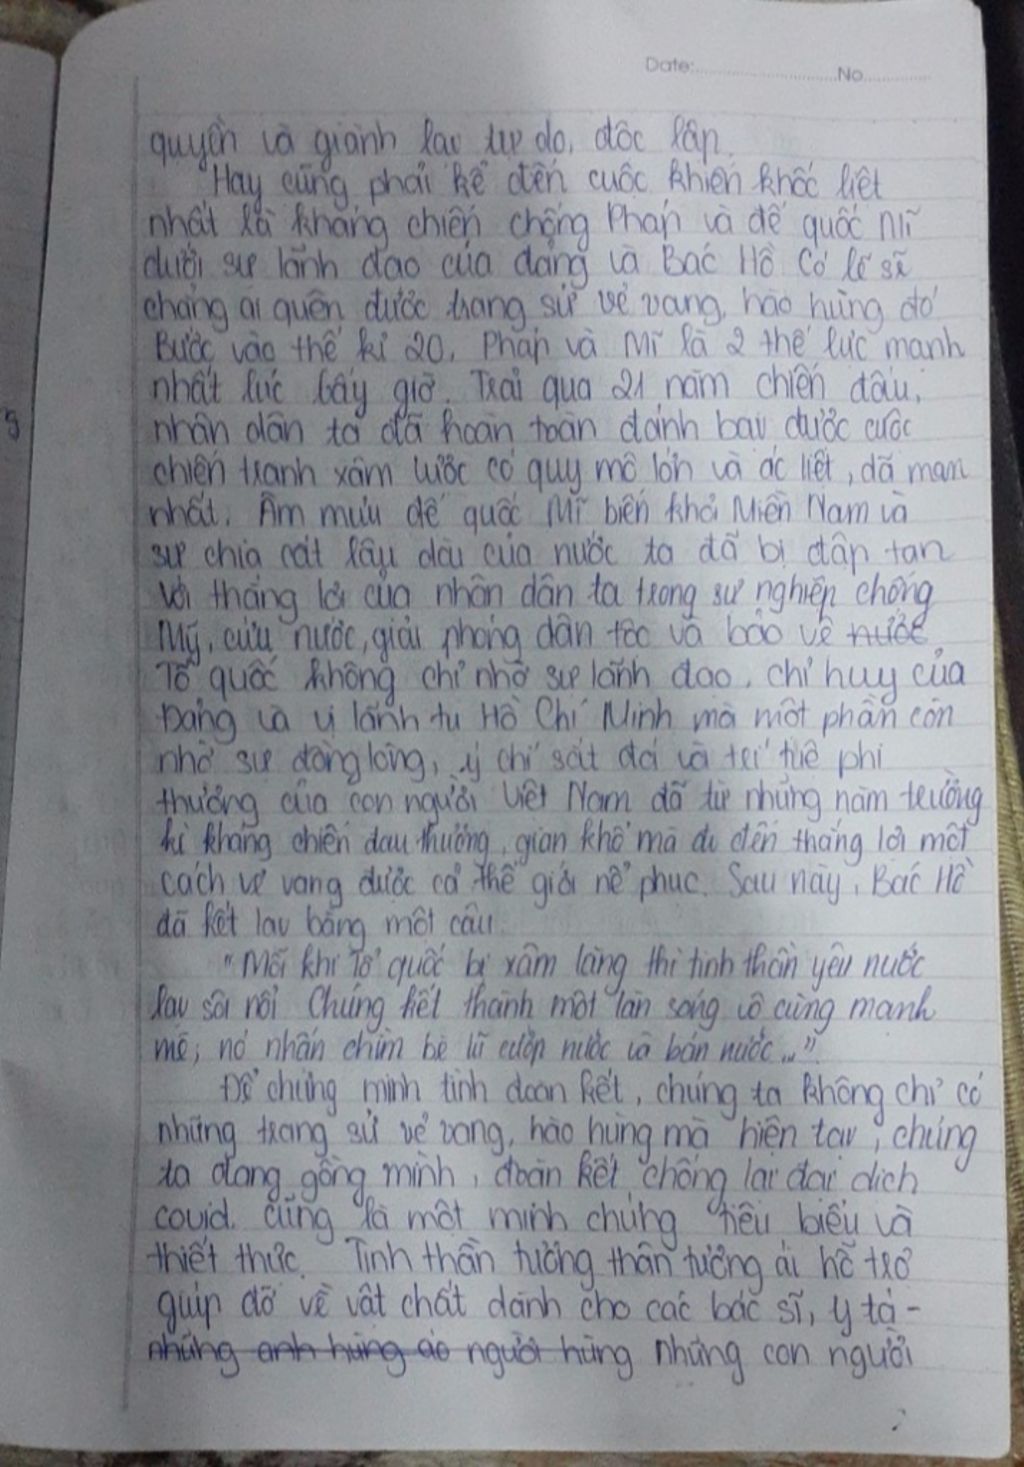 Date: No
quyền và giành lại tự do, độc lập.
Hay cũng phải kể đến cuộc khiến khốc liệt
nhất là kháng chiến chống Pháp và đế quốc Mĩ
dưới sự lãnh đạo của đảng và Bác Hồ Có lẽ sẽ
chẳng ai quên được trang sử vẻ vang, hào hùng đó
Bước vào thế kỉ 20, Pháp và Mĩ là 2 thế lực mạnh
nhất lúc bấy giờ. Trải qua 21 năm chiến đấu,
nhân dân ta đã hoàn toàn đánh bại được cuộc
chiến tranh xâm lược có quy mô lớn và ác liệt, dã man
nhất. Âm mưu đế quốc Mĩ biến khỏi Miền Nam và
sự chia cắt lâu dài của nước ta đã bị đập tan
Với thắng lợi của nhân dân ta trong sự nghiệp chống
Mỹ, cứu nước, giải phóng dân tộc và bảo vệ nước
Tổ quốc không chỉ nhờ sự lãnh đạo, chỉ huy của
Đảng và vị lãnh tụ Hồ Chí Minh mà một phần còn
nhờ sự đồng lòng, ý chí sắt đá và trí tuệ phi
thường của con người Việt Nam đã từ những năm trường
kì kháng chiến đau thương, gian khổ mà đi đến thắng lợi một
cách vẻ vang được cả thế giới nể phục. Sau này, Bác Hồ
đã kết lại bằng một câu
"Mỗi khi Tổ quốc bị xâm lăng thì tinh thần yêu nước
lại sôi nổi Chúng kết thành một làn sóng vô cùng mạnh
mẽ, nó nhấn chìm bè lũ cướp nước và bán nước..."
Để chứng minh tinh đoàn kết, chúng ta không chỉ có
những trang sử vẻ vang, hào hùng mà hiện tại, chúng
ta đang gồng mình, đoàn kết chống lại đại dịch
covid. Cũng là một minh chứng tiêu biểu và
thiết thực. Tinh thần tương thân tương ái hỗ trợ
giúp đỡ về vật chất dành cho các bác sĩ, y tá -
những anh hùng áo người hùng những con người